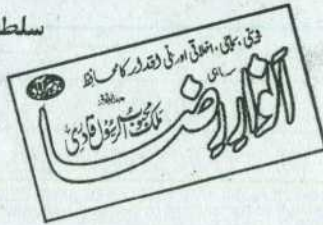 سلط
دینی، سماجی، اخلاقی اور ملی اقدار کا محافظ
سہ ماہی
انوار رضا
ملک محبوب الرسول قادری